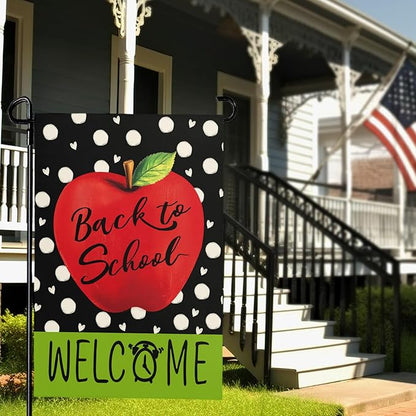 Back to
School
WELCOME